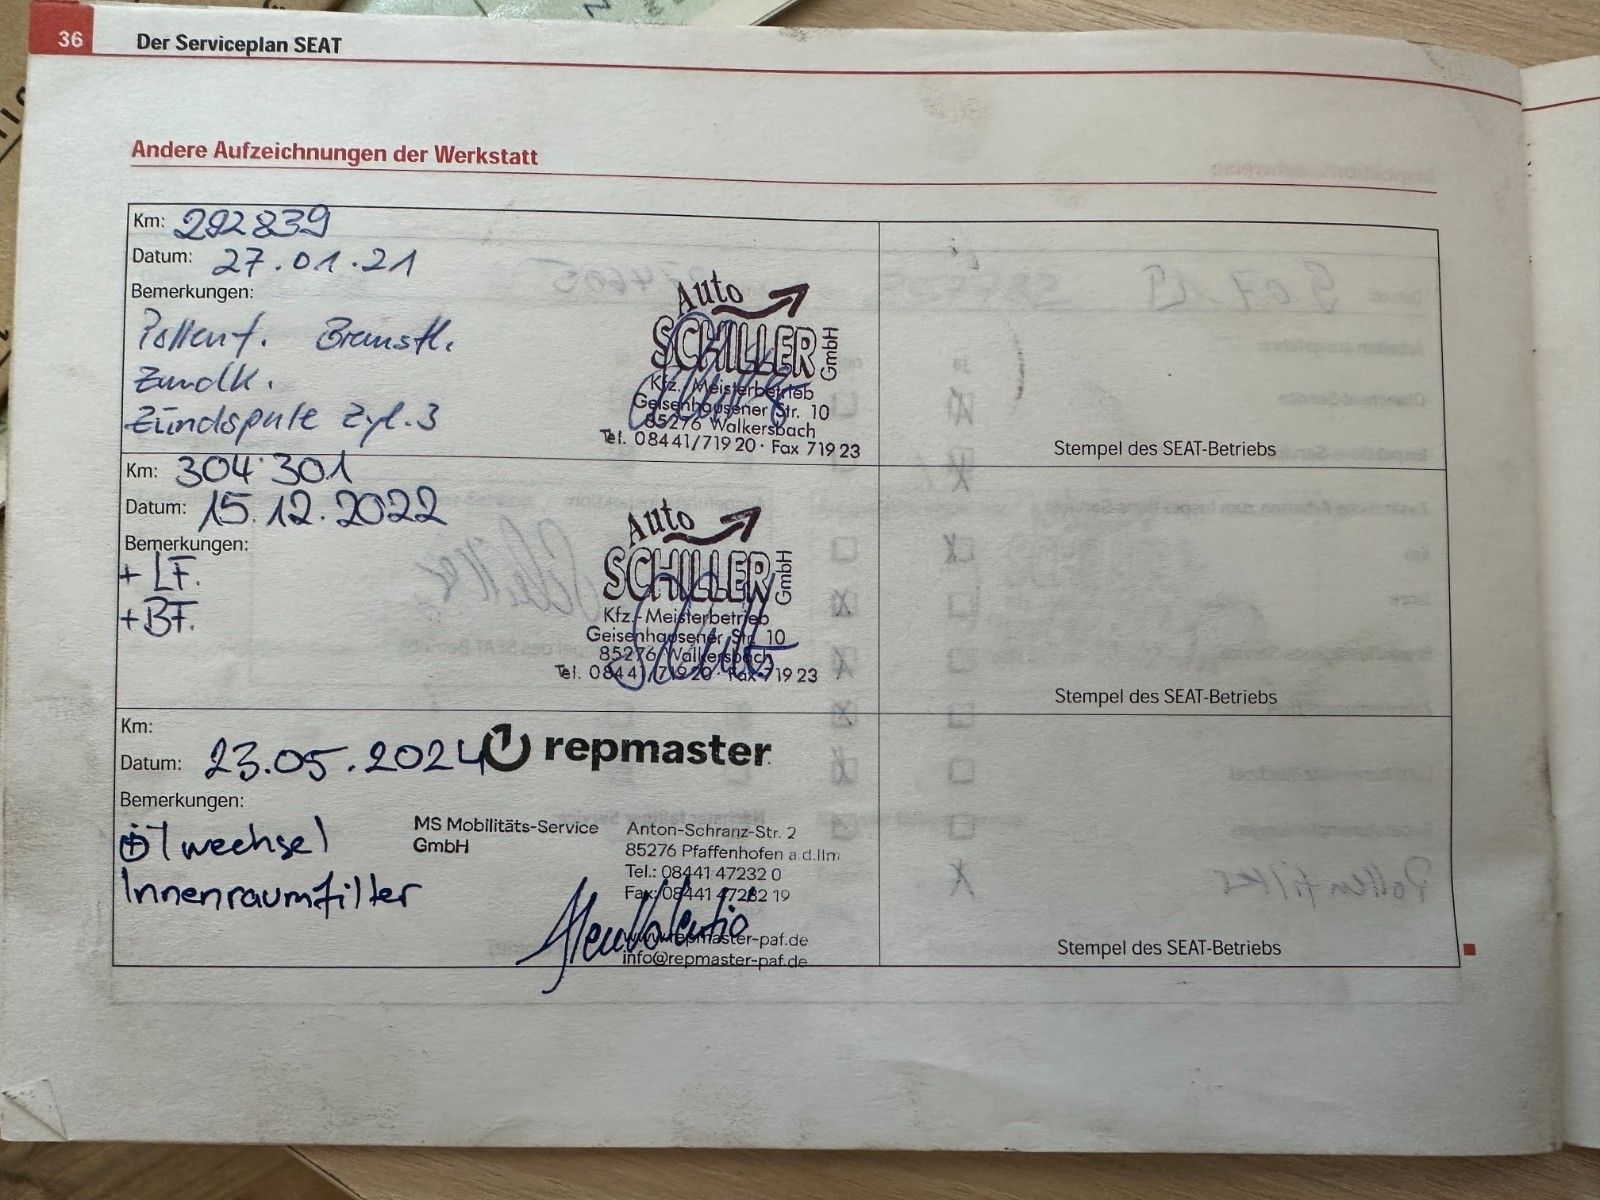 36 Der Serviceplan SEAT
Andere Aufzeichnungen der Werkstatt
Km: 292839
Datum: 27.01.21
Bemerkungen:
Pollenf. Bremsfl.
Zündk.
Zündspule Zyl.3
Auto
SCHILLER GmbH
Kfz.-Meisterbetrieb
Geisenhausener Str. 10
85276 Walkersbach
Tel. 08441/719 20 · Fax 719 23
Stempel des SEAT-Betriebs
Km: 304301
Datum: 15.12.2022
Bemerkungen:
+ LF.
+ BF.
Auto
SCHILLER GmbH
Kfz.-Meisterbetrieb
Geisenhausener Str. 10
85276 Walkersbach
Tel. 08441/719 20 · Fax 719 23
Stempel des SEAT-Betriebs
Km:
Datum: 23.05.2024
Bemerkungen:
Ölwechsel
Innenraumfilter
repmaster
MS Mobilitäts-Service
GmbH
Anton-Schranz-Str. 2
85276 Pfaffenhofen a.d.Ilm
Tel.: 08441 47232 0
Fax: 08441 47232 19
www.repmaster-paf.de
info@repmaster-paf.de
Stempel des SEAT-Betriebs